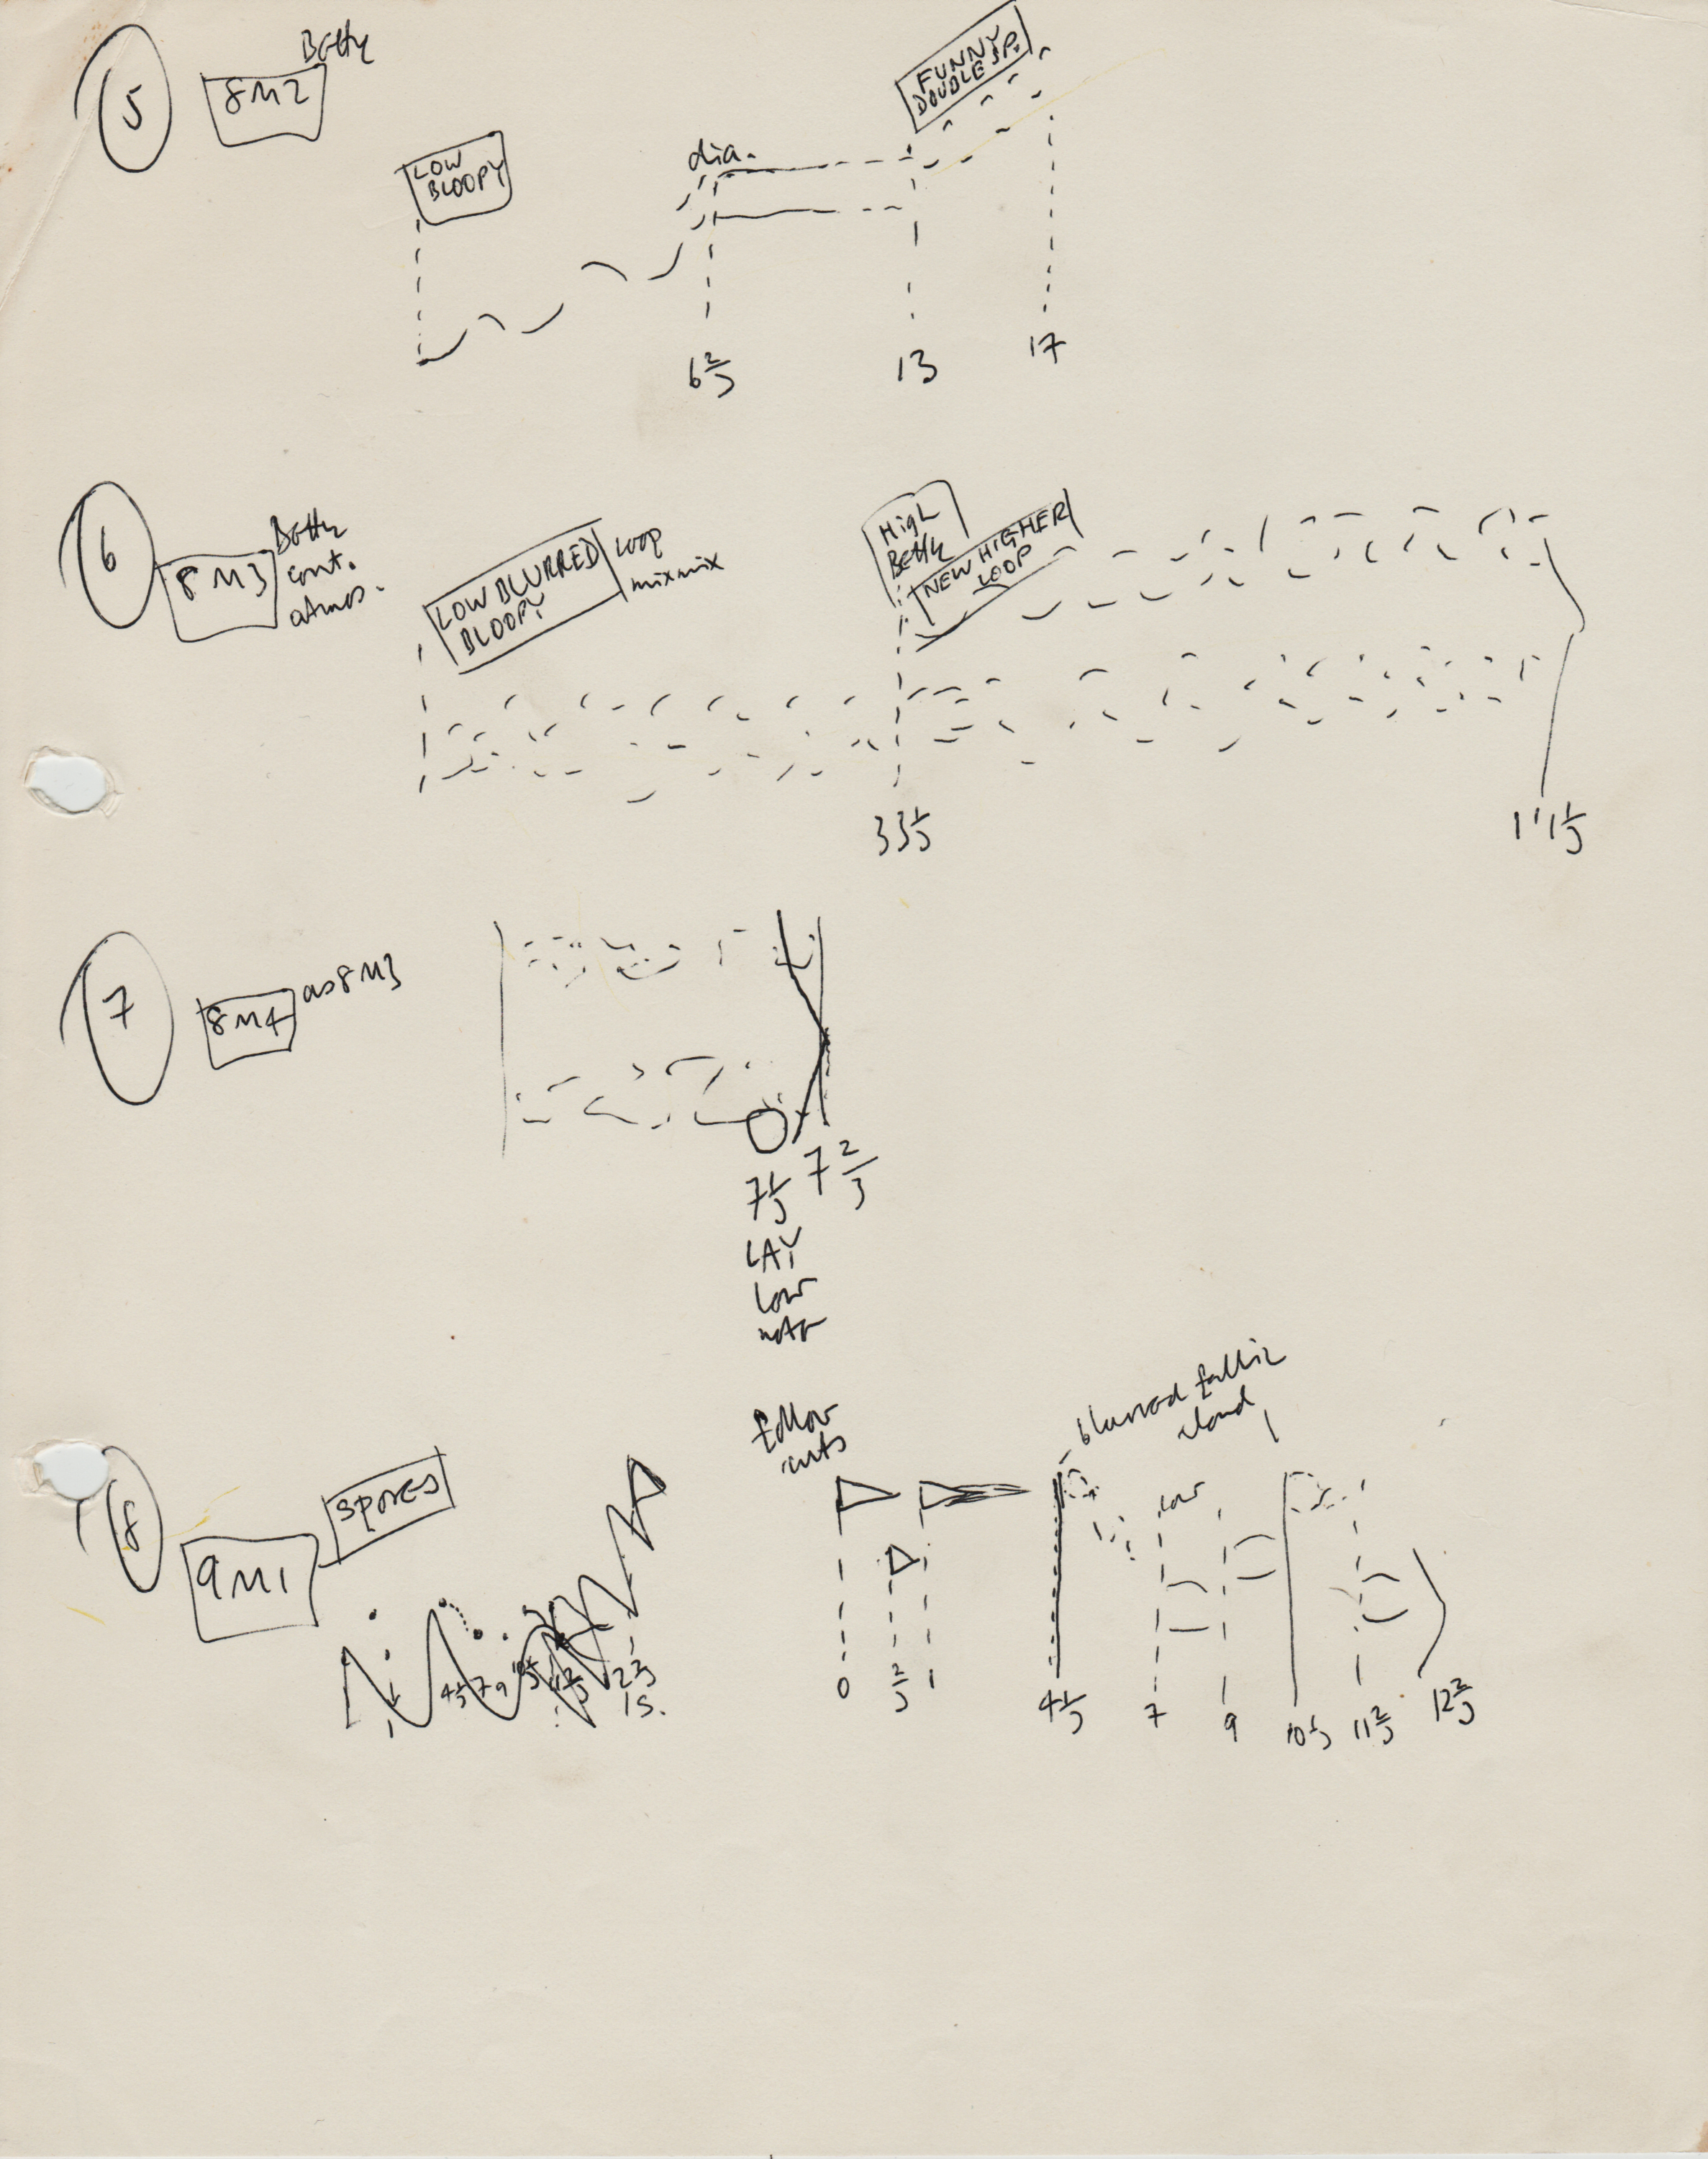 5
8M2
Betty
LOW
BLOOPY
dia.
FUNNY
DOUBLE SP.
6 2/3
13
17
6
8M3
Betty
cont.
atmos.
LOW BLURRED
BLOOPY
LOOP
mix mix
High
Betty
NEW HIGHER
LOOP
33 1/3
1'1 1/3
7
8M4
as 8M3
7 1/3
7 2/3
LAY
low
note
8
9M1
spores
4 1/3 7 9
15.
follow
cuts
blurred falling
cloud
low
0
2/3
1
4 1/3
7
9
10 1/3
11 2/3
12 2/3